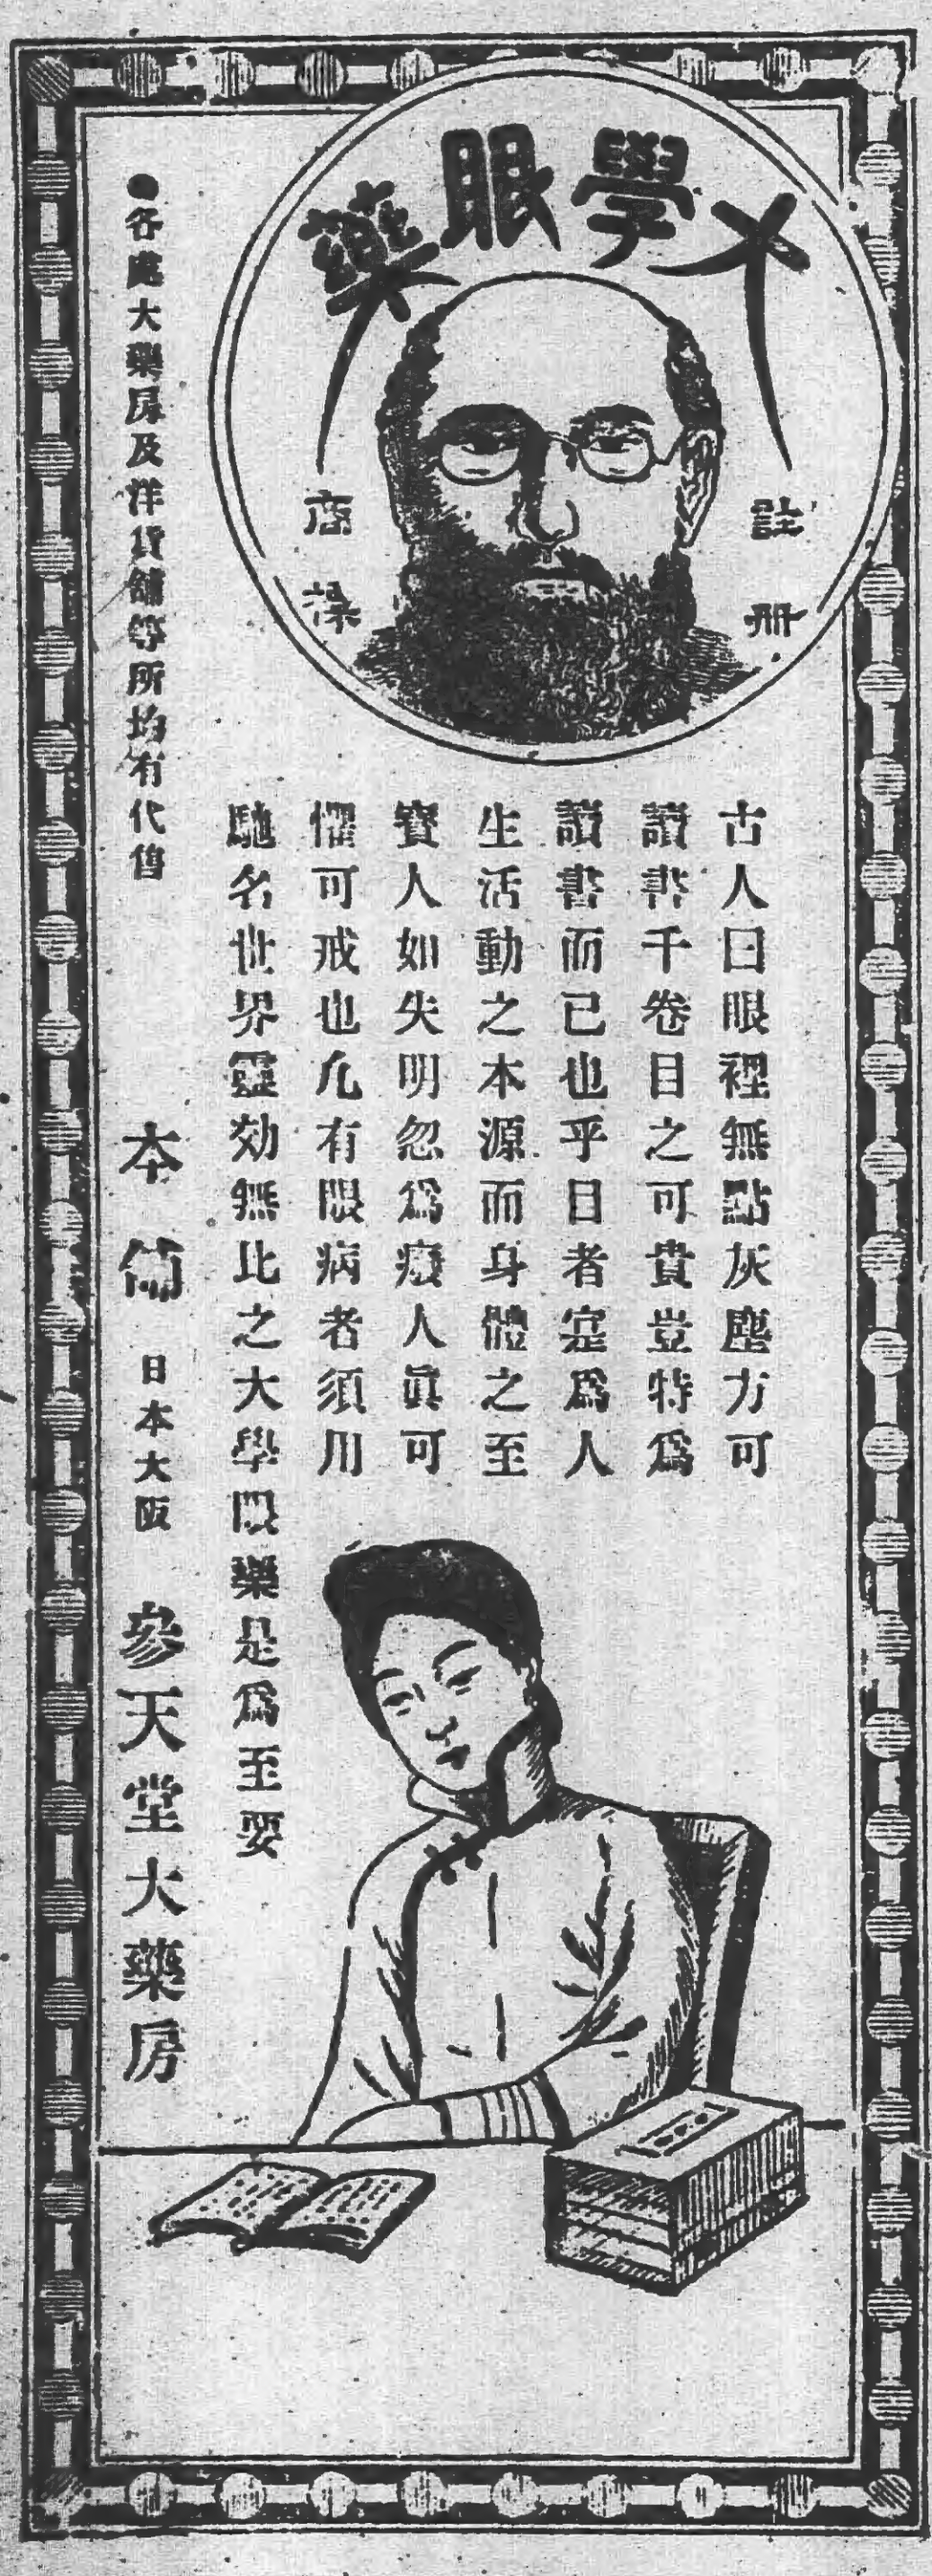 大學眼藥
註冊
商標
古人曰眼裡無點灰塵方可
讀書千卷目之可貴豈特爲
讀書而已也乎目者寔爲人
生活動之本源而身體之至
寶人如失明忽爲癈人眞可
懼可戒也凢有眼病者須用
馳名世界靈効無比之大學眼藥是爲至要
本舖 日本大阪 參天堂大藥房
●各處大藥房及洋貨舖等所均有代售